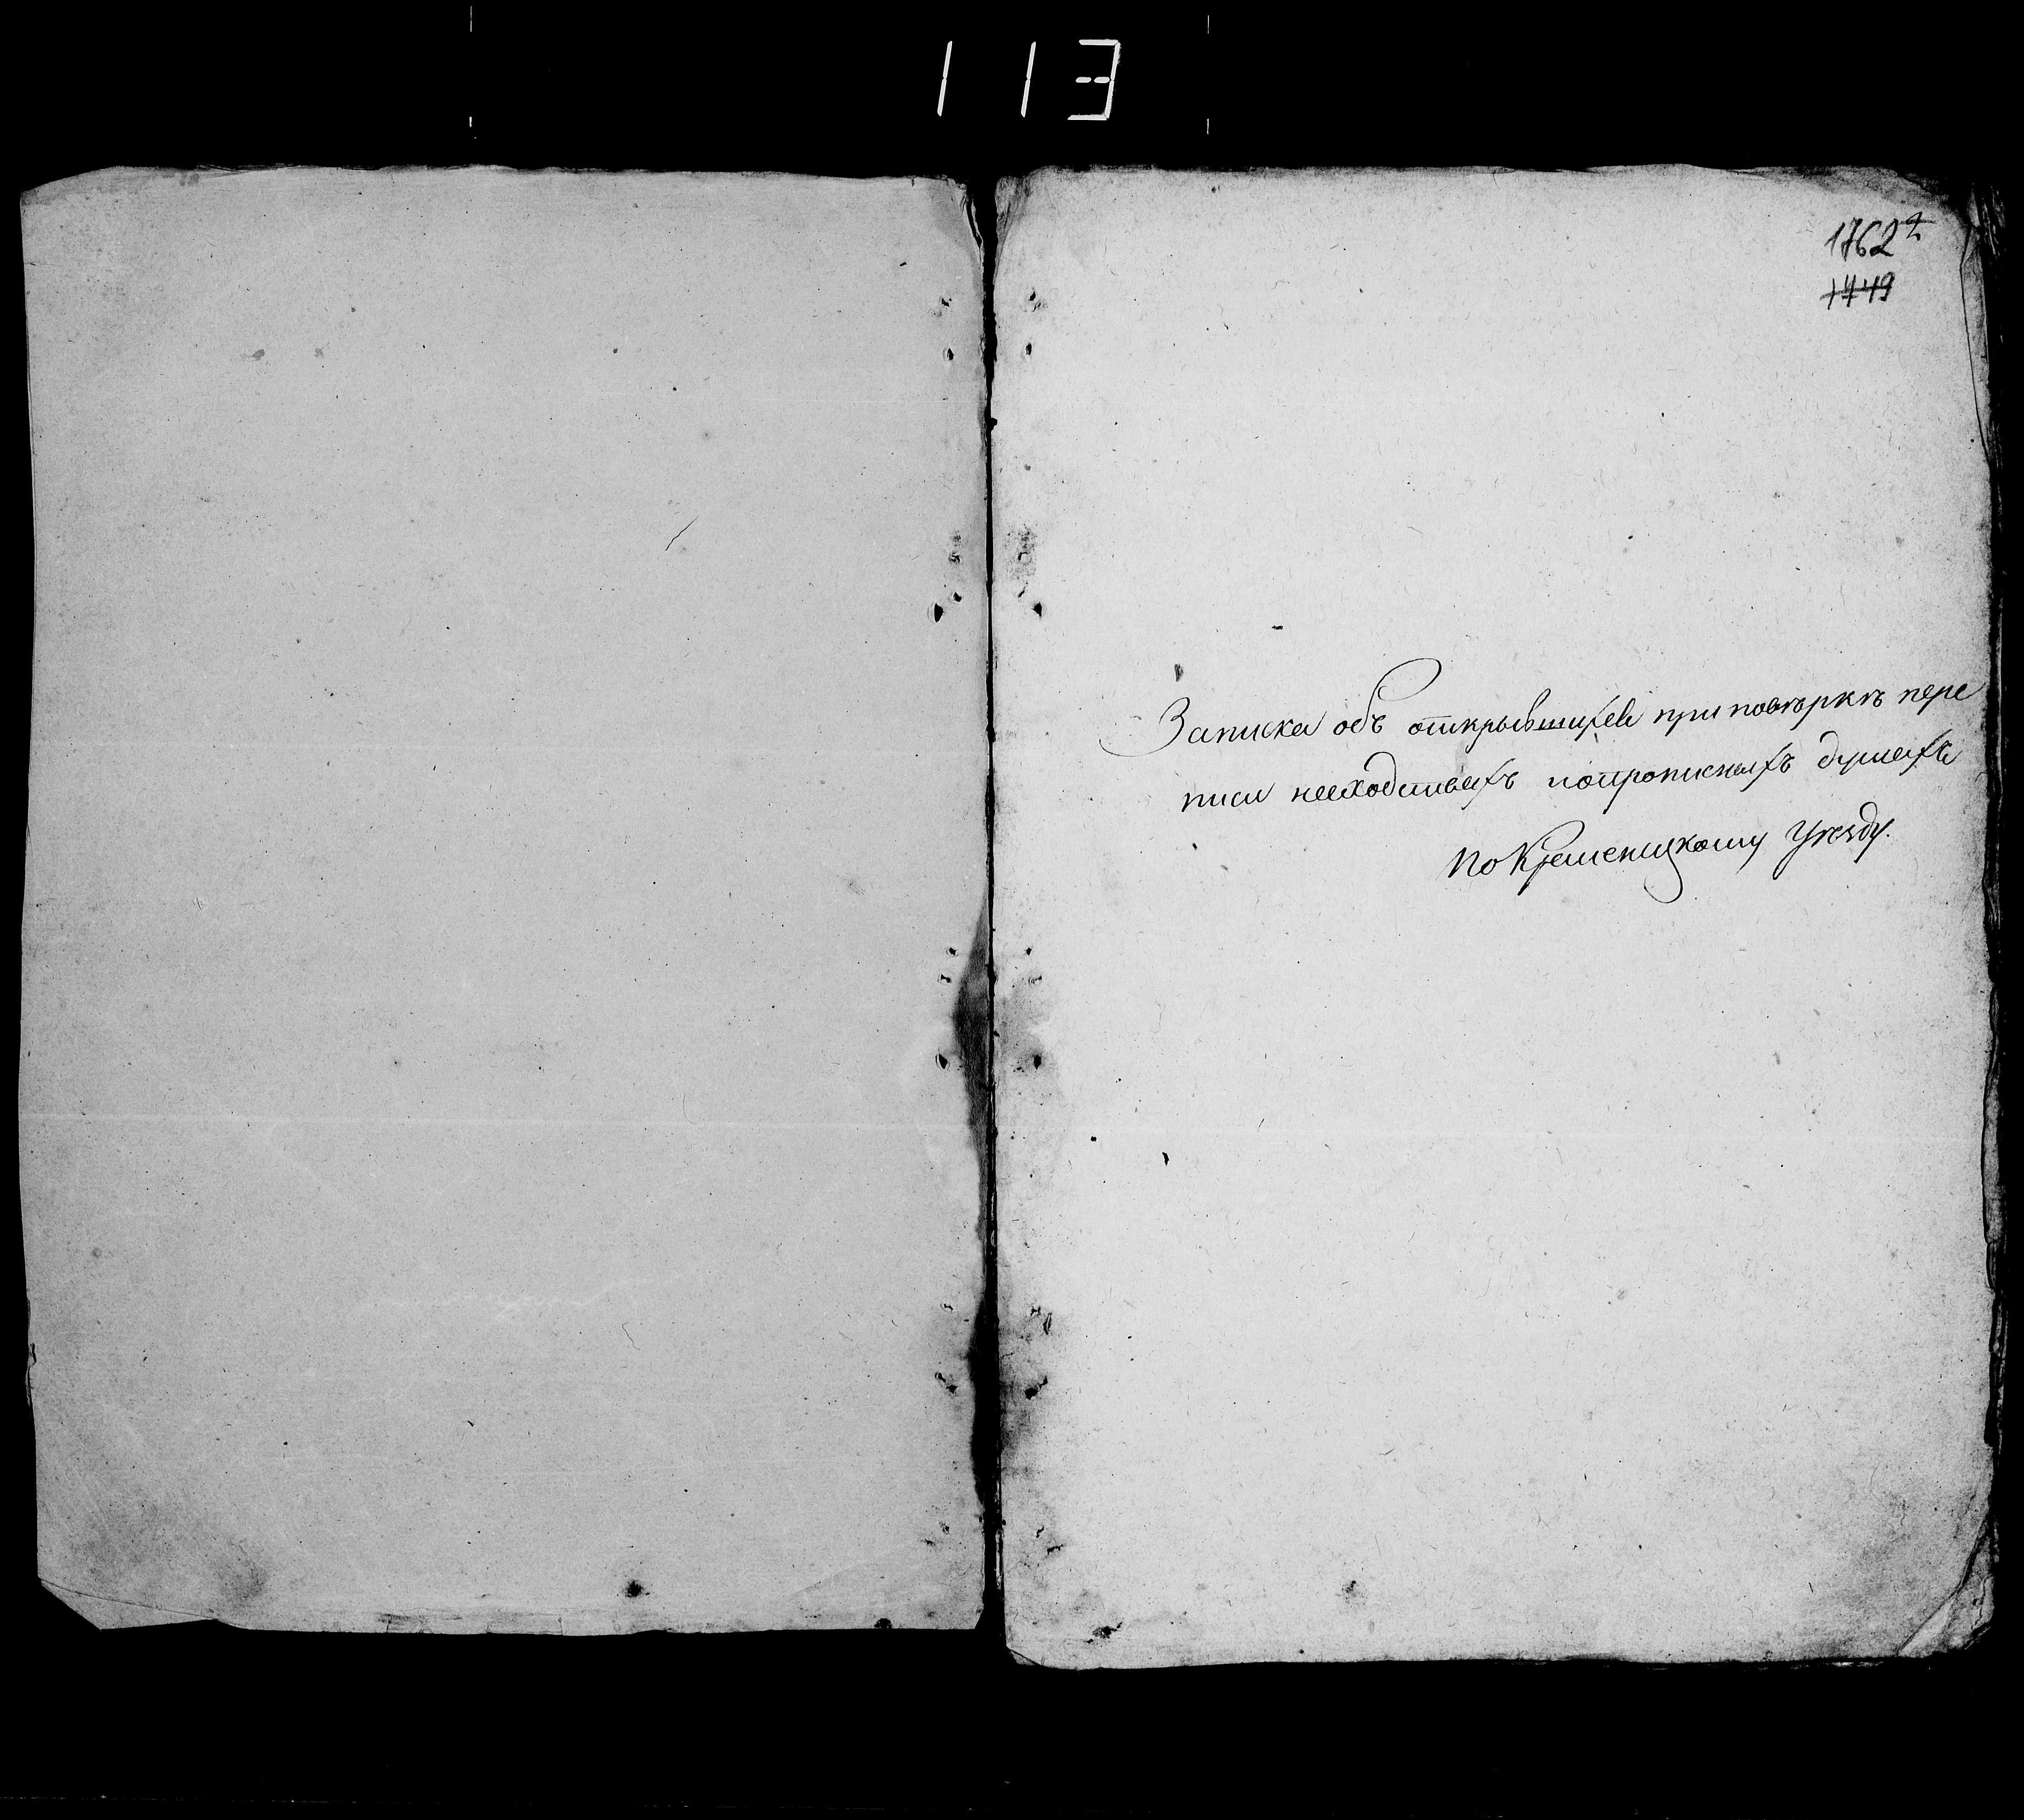 113
1762 2
1749
Записка объ открывшихся при повѣркѣ пере
писи несходствахъ и о прописныхъ душахъ
По Кременецкому уѣзду.